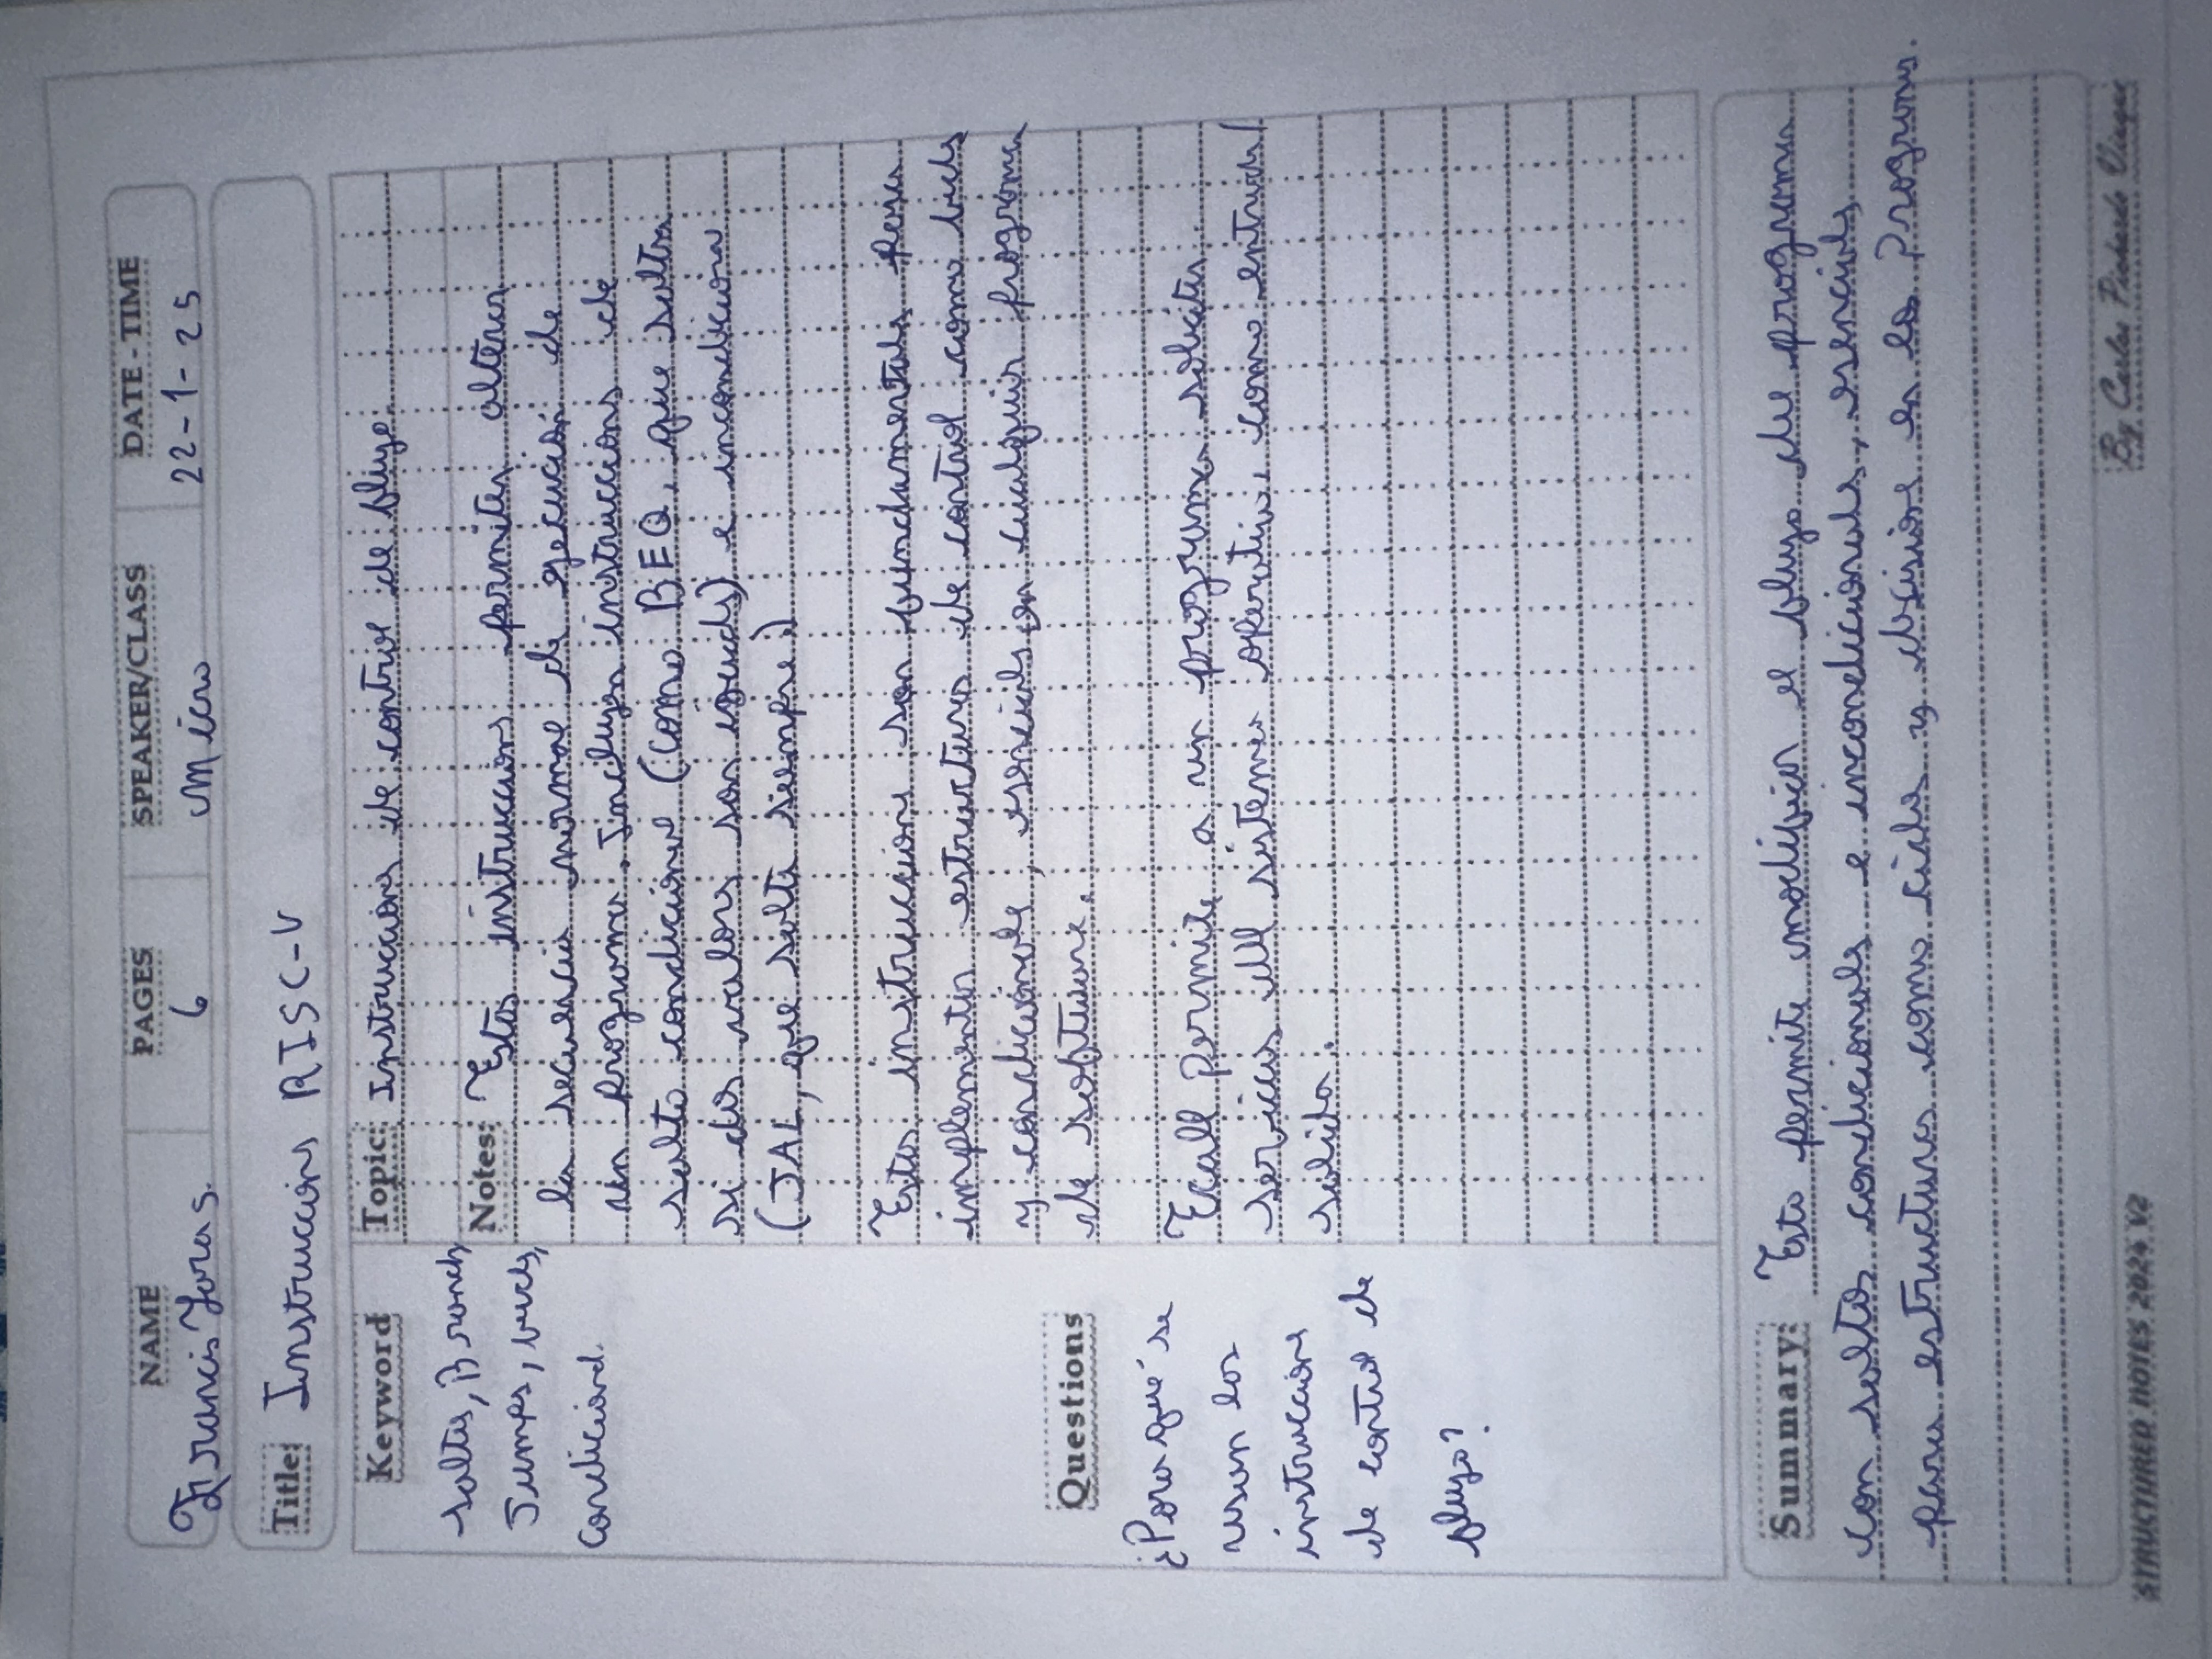 NAME PAGES SPEAKER/CLASS DATE - TIME
Francis 6 Micro 22-1-25
Title: Instruccions RISC-V
Keyword
Saltos, Branch
Jumps, bucls,
Condicional.
Topic: Instruccions de control de flujo.
Notes: Estas instruccions permiten alterar
la secuencia normal de ejecución de
un programa. Incluyen instruccions de
salto condicional (como BEQ, que salta
si dos valors son iguals) e incondicional
(JAL, que salta siempre.)
Estas instruccions son fundamentals para
implementar estructuras de control como bucls
y condicionals, esencials en cualquier programa
de software.
Ecall permite a un programa solicitar
servicios del sistema operativo, como entrada/
salida.
Questions
¿Para qué se
usan las
instruccions
de control de
flujo?
Summary: Esto permite modificar el flujo del programa
con saltos condicionals e incondicionals, esencials
para estructuras como ciclos y decisions en los Programas.
STRUCTURED NOTES 2024 V2
By Carlos Pichardo Viuque